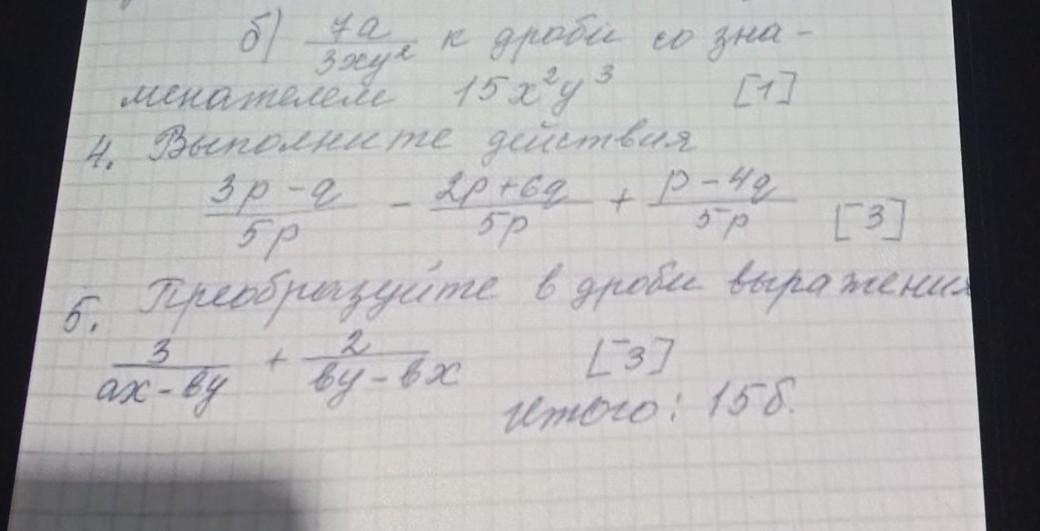 б) 7a/3xy² к дроби со зна-
менателем 15x²y³ [1]
4. Выполните действия
3p-q/5p - 2p+6q/5p + p-4q/5p [3]
5. Преобразуйте в дроби выражения
3/ax-by + 2/by-bx [3]
Итого: 15б.